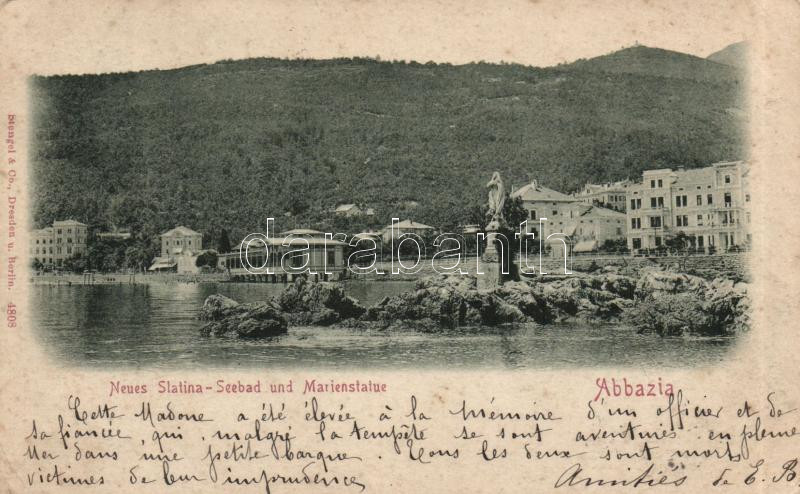 Stengel & Co., Dresden u. Berlin. 4808
darabanth
Neues Slatina-Seebad und Marienstatue
Abbazia
Cette Madone a été élevée à la mémoire d'un officier et de
sa fiancée, qui, malgré la tempête se sont aventurés en pleine
Mer dans une petite barque. Tous les deux sont morts
victimes de leur imprudence
Amitiés de E. B.